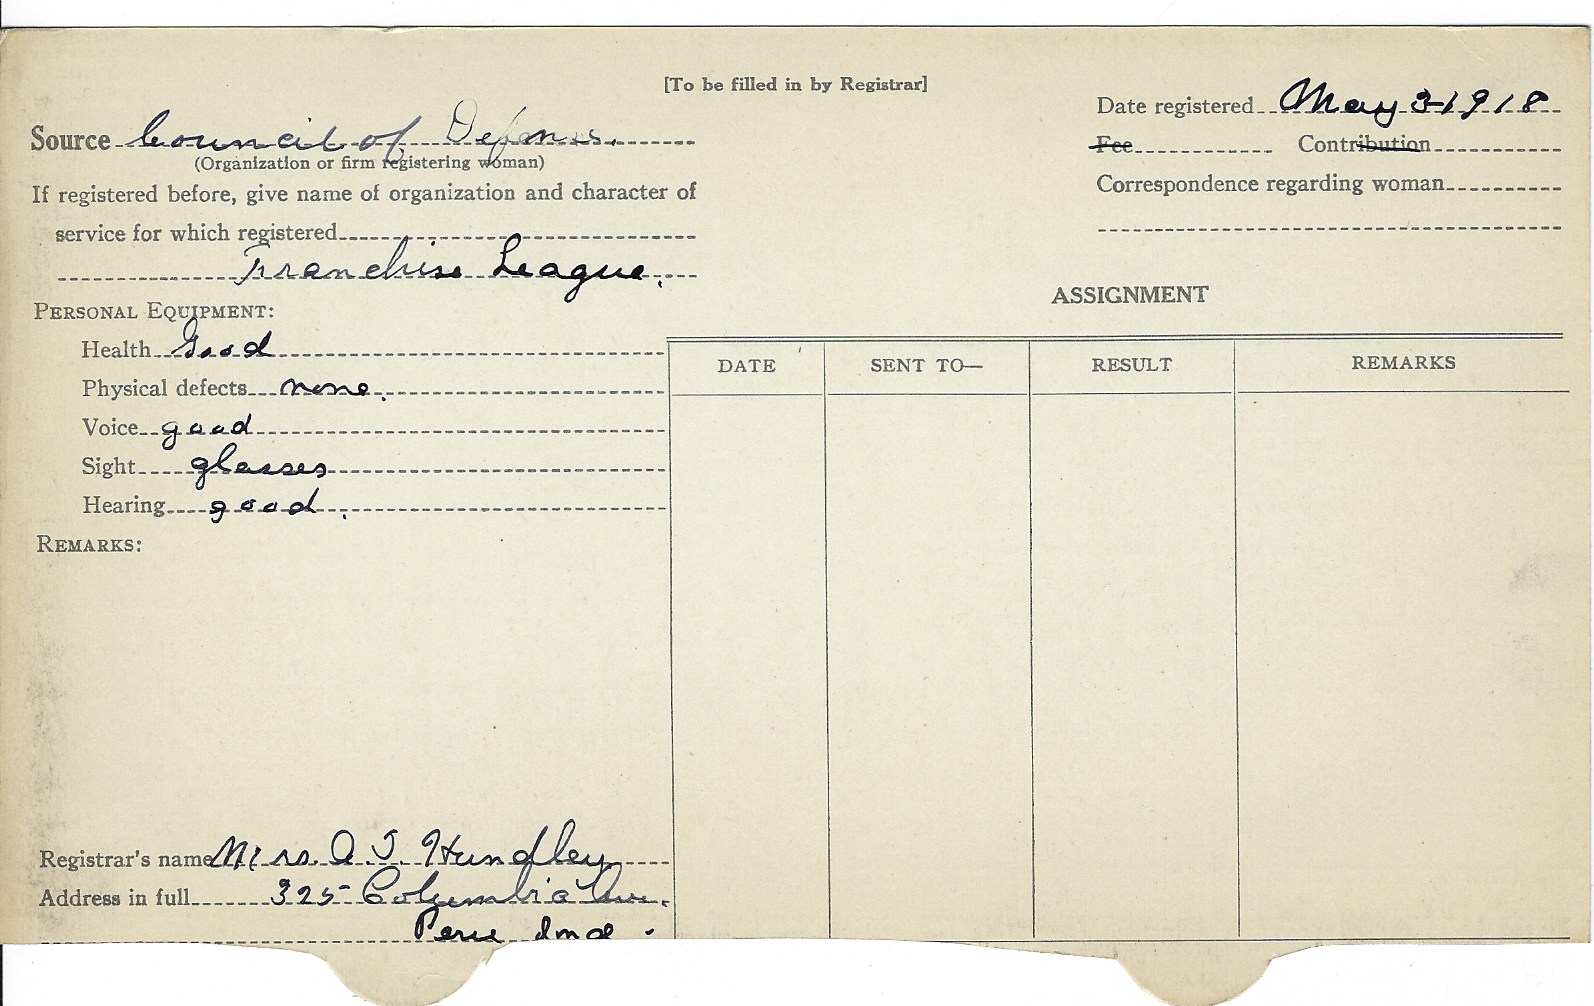 [To be filled in by Registrar]
Date registered May 3-1918
Source Council of Defense.
(Organization or firm registering woman)
Fee Contribution
If registered before, give name of organization and character of
Correspondence regarding woman
service for which registered
Franchise League.
ASSIGNMENT
PERSONAL EQUIPMENT:
Health Good
Physical defects none.
Voice good
Sight glasses
Hearing good.
DATE SENT TO— RESULT REMARKS
REMARKS:
Registrar's name Mrs. O. T. Hundley
Address in full 325 Columbia Ave.
Peru Ind.